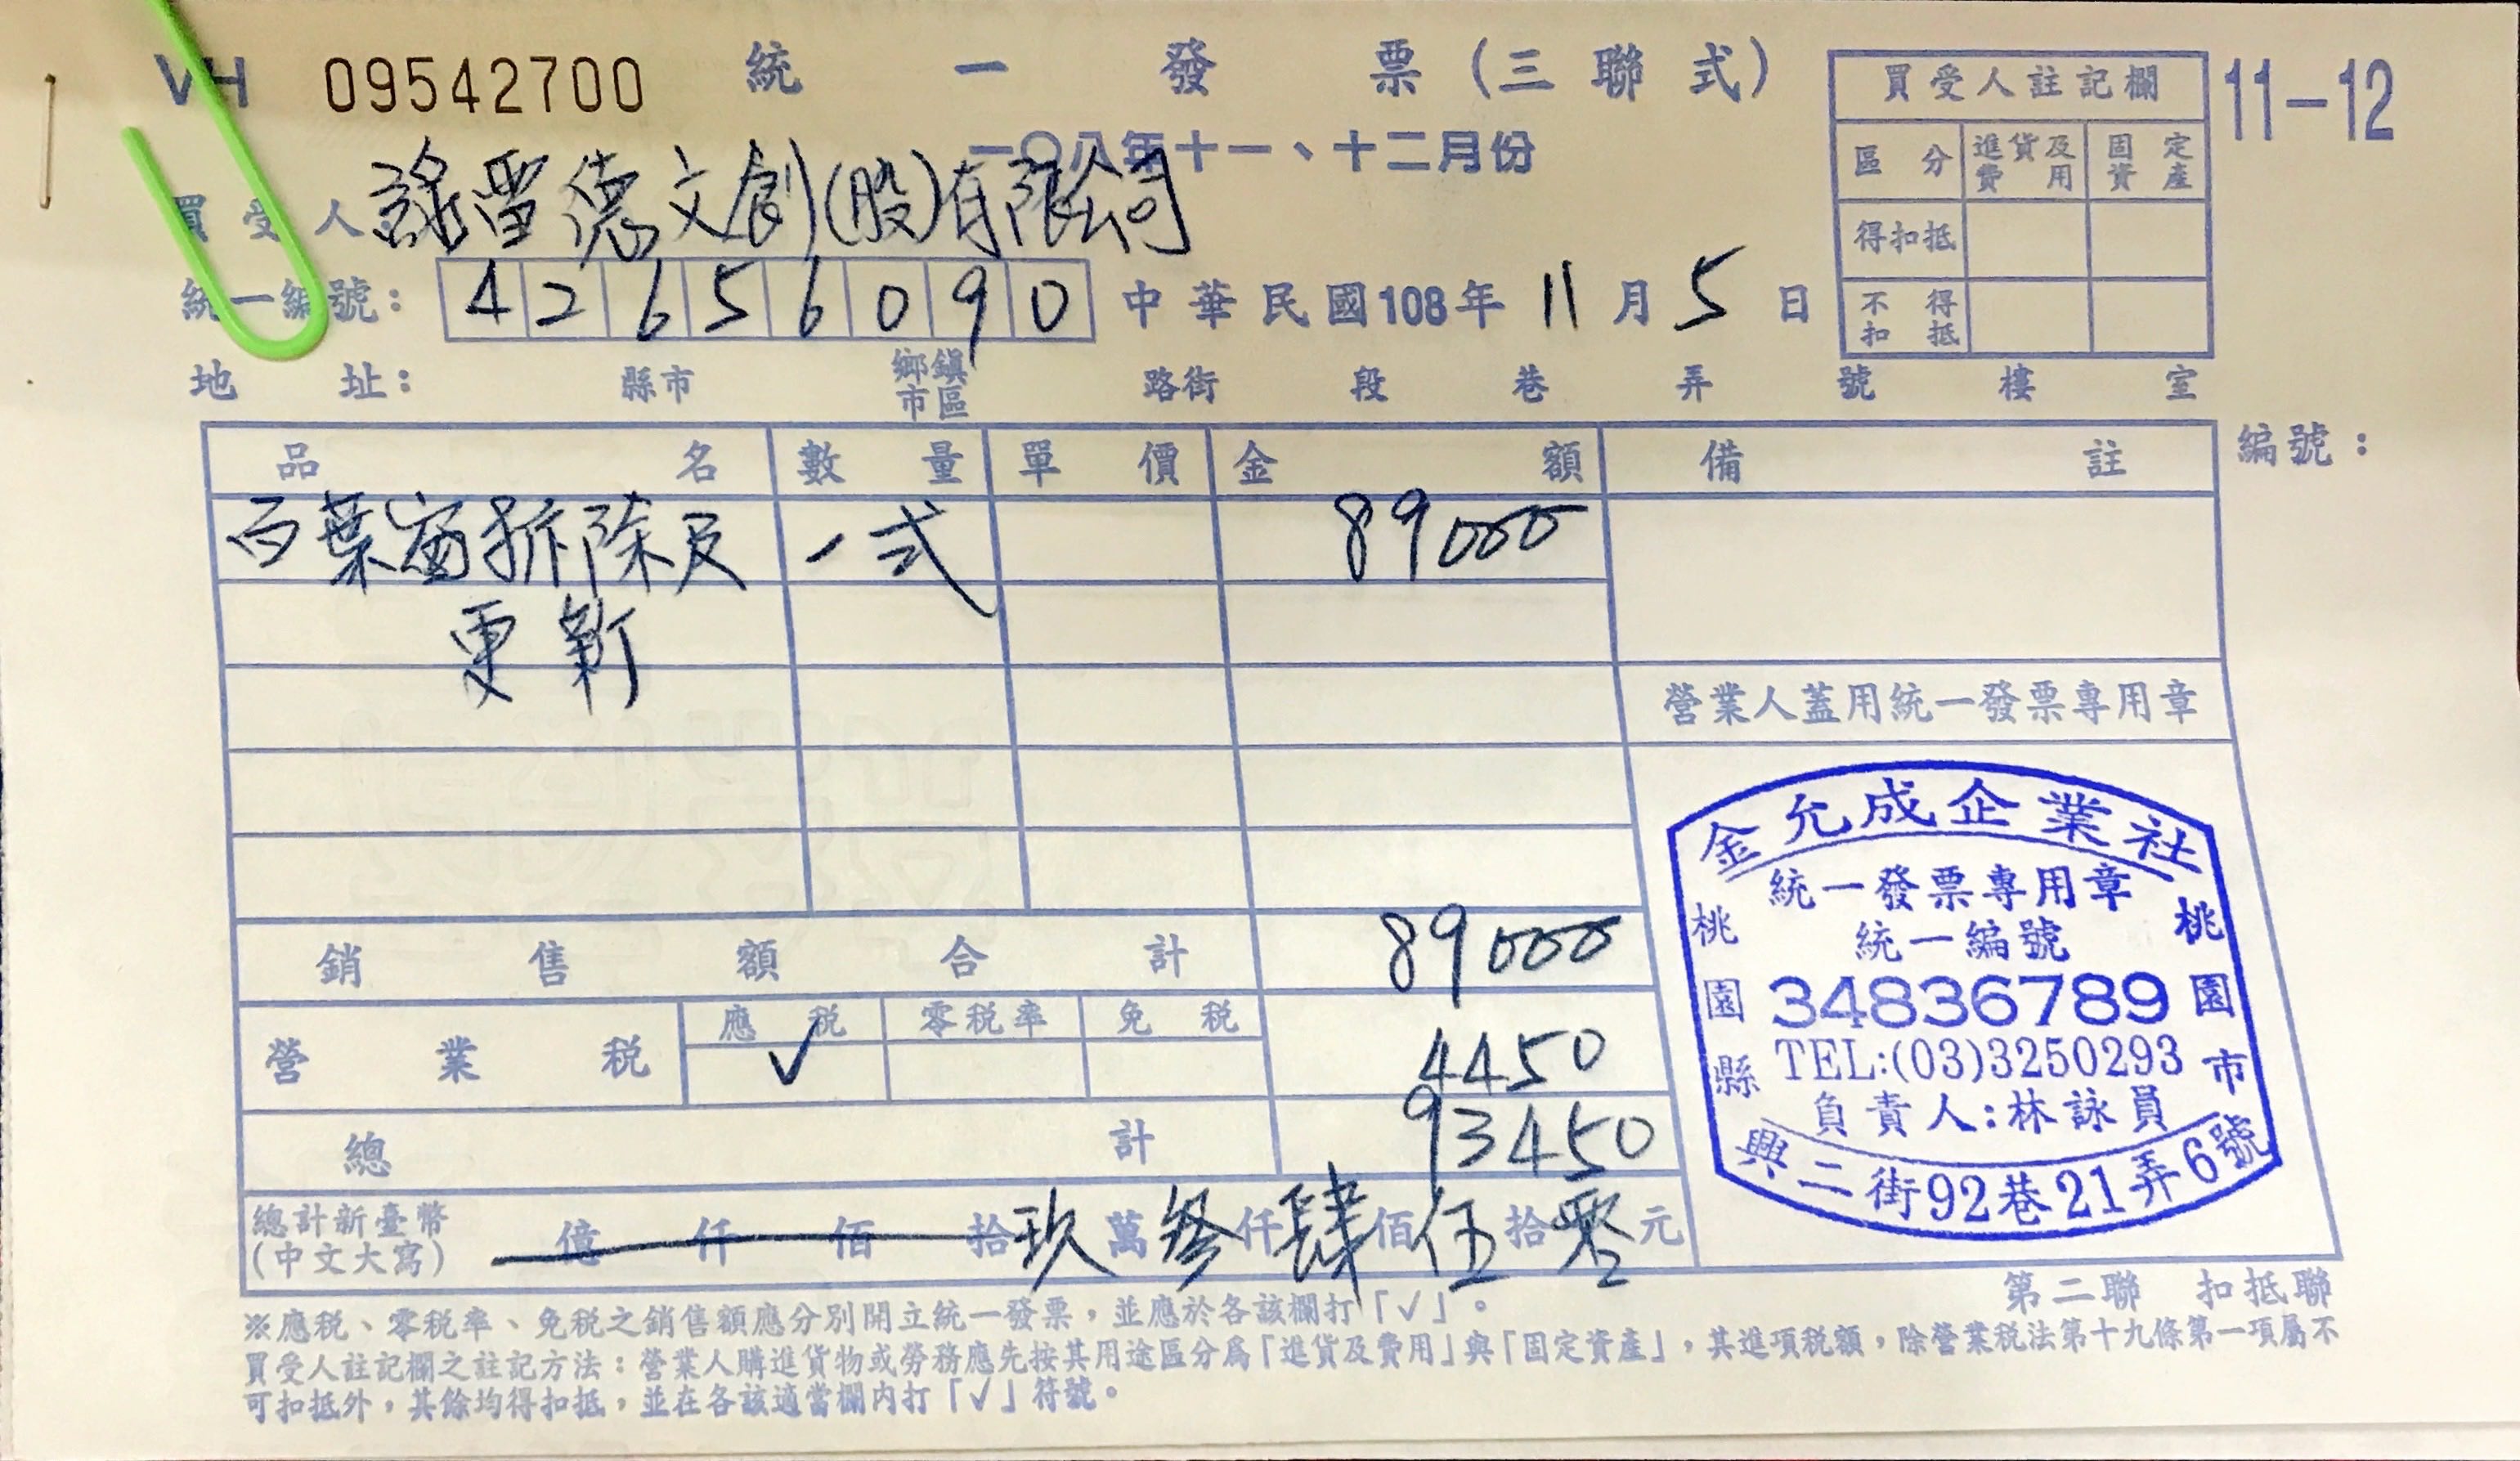 VH 09542700 統一發票(三聯式)
一〇八年十一、十二月份
11-12
買受人註記欄
區分 進貨及費用 固定資產
得扣抵
不得扣抵
買受人: 雷德文創(股)有限公司
統一編號: 42656090 中華民國108年11月5日
地址: 縣市 鄉鎮市區 路街 段 巷 弄 號 樓 室
品名 數量 單價 金額 備註 編號:
百葉窗拆除及 一式 89000
更新
營業人蓋用統一發票專用章
銷售額合計 89000
營業稅 應稅 ✓ 零稅率 免稅 4450
總計 93450
總計新臺幣(中文大寫) 億 仟 佰 拾玖萬叁仟肆佰伍拾零元
金允成企業社
統一發票專用章
統一編號
34836789
TEL:(03)3250293
負責人:林詠員
桃園縣桃園市
興二街92巷21弄6號
第二聯 扣抵聯
※應稅、零稅率、免稅之銷售額應分別開立統一發票,並應於各該欄打「✓」。
買受人註記欄之註記方法:營業人購進貨物或勞務應先按其用途區分爲「進貨及費用」與「固定資產」,其進項稅額,除營業稅法第十九條第一項屬不
可扣抵外,其餘均得扣抵,並在各該適當欄內打「✓」符號。